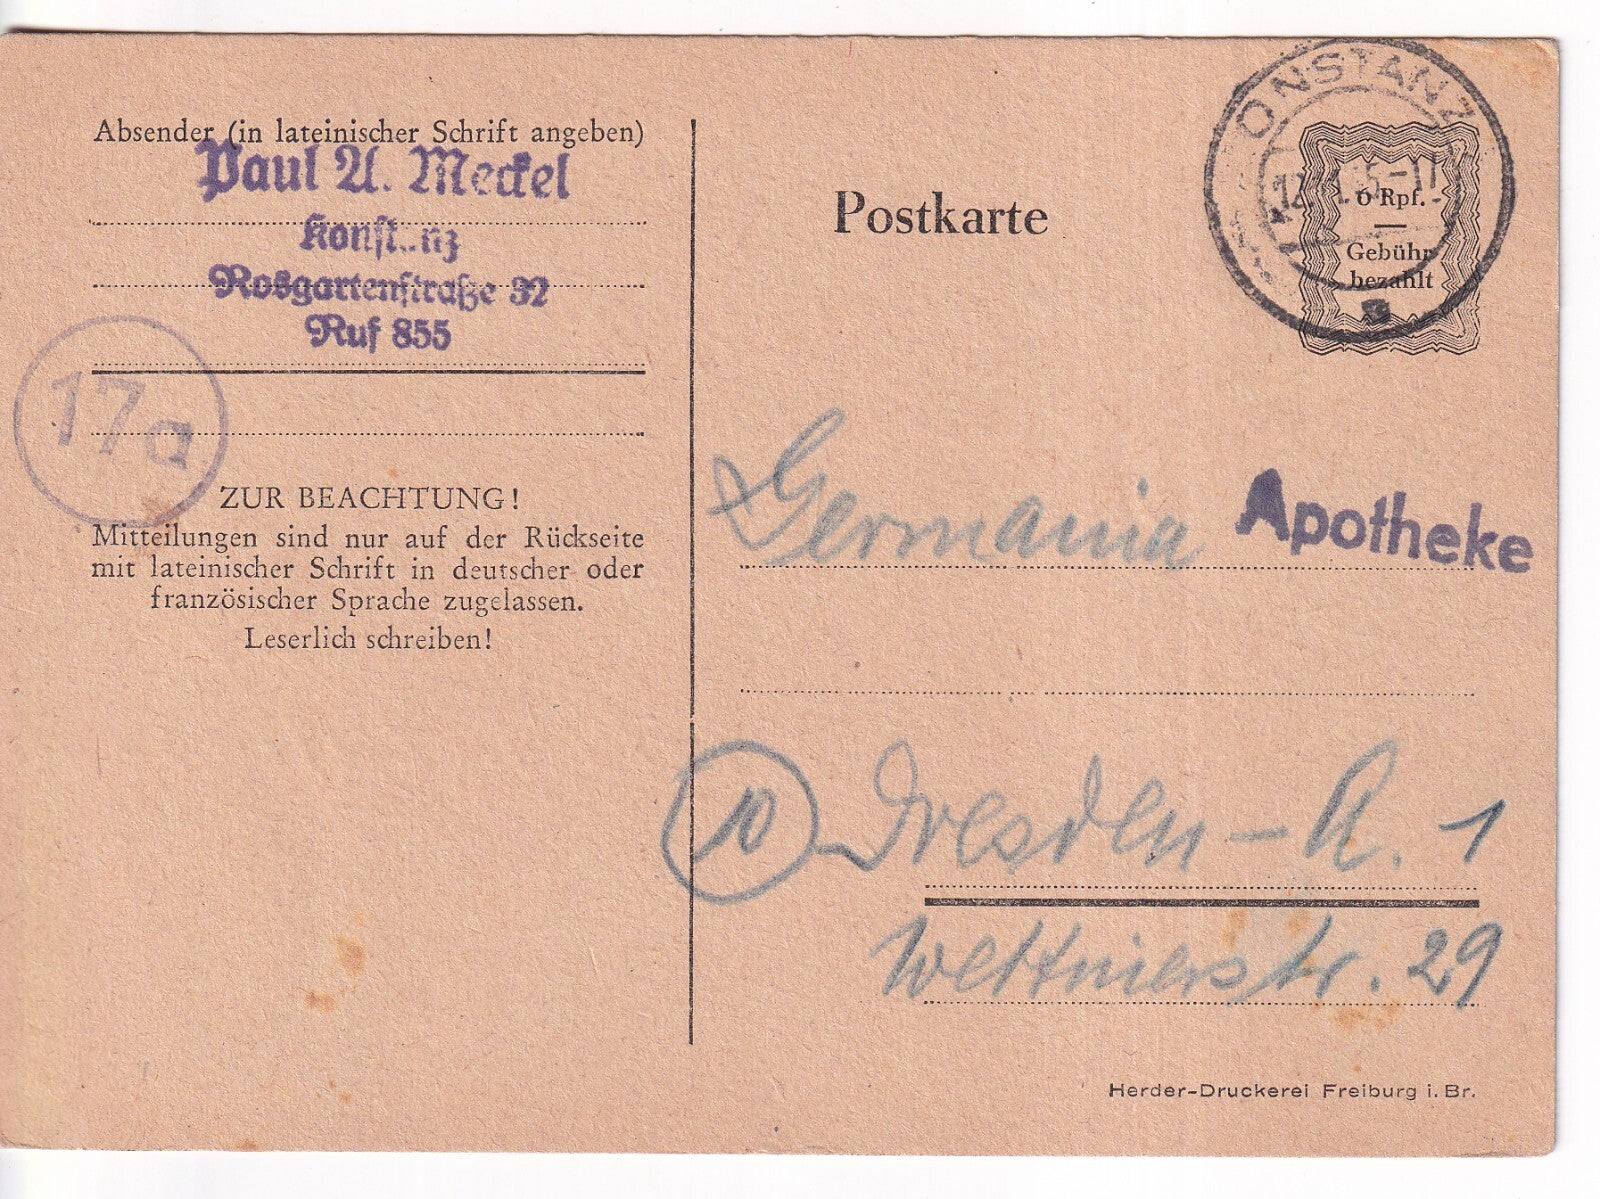 Absender (in lateinischer Schrift angeben)
Paul A. Meckel
Rosgartenstraße 32
Ruf 855
17a
ZUR BEACHTUNG!
Mitteilungen sind nur auf der Rückseite
mit lateinischer Schrift in deutscher oder
französischer Sprache zugelassen.
Leserlich schreiben!
Postkarte
ONSTANZ
6 Rpf.
Gebühr
bezahlt
Germania Apotheke
10 Dresden - A. 1
Wettinerstr. 29
Herder-Druckerei Freiburg i. Br.